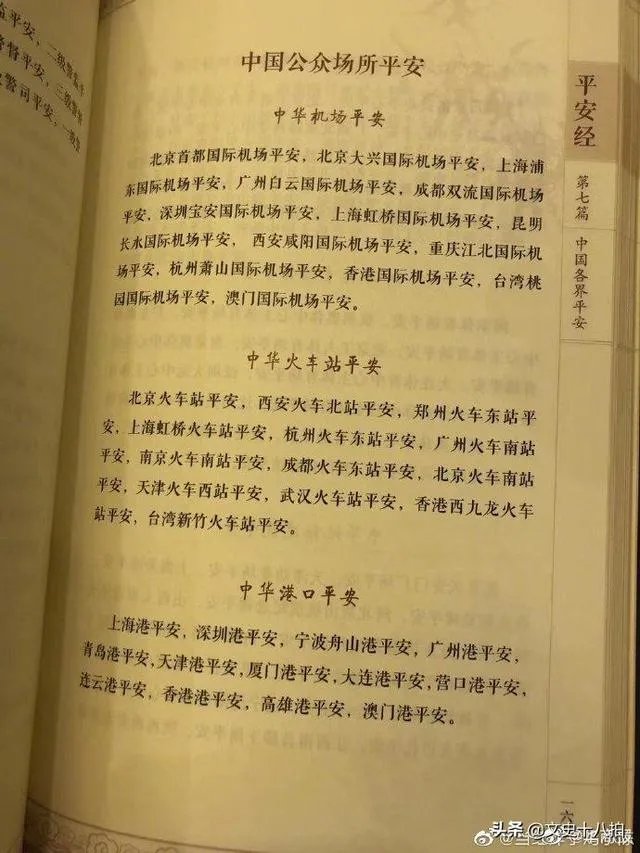 中国公众场所平安
中华机场平安
北京首都国际机场平安，北京大兴国际机场平安，上海浦
东国际机场平安，广州白云国际机场平安，成都双流国际机场
平安，深圳宝安国际机场平安，上海虹桥国际机场平安，昆明
长水国际机场平安，西安咸阳国际机场平安，重庆江北国际机
场平安，杭州萧山国际机场平安，香港国际机场平安，台湾桃
园国际机场平安，澳门国际机场平安。
中华火车站平安
北京火车站平安，西安火车北站平安，郑州火车东站平
安，上海虹桥火车站平安，杭州火车东站平安，广州火车南站
平安，南京火车南站平安，成都火车东站平安，北京火车南站
平安，天津火车西站平安，武汉火车站平安，香港西九龙火车
站平安，台湾新竹火车站平安。
中华港口平安
上海港平安，深圳港平安，宁波舟山港平安，广州港平安，
青岛港平安，天津港平安，厦门港平安，大连港平安，营口港平安，
连云港平安，香港港平安，高雄港平安，澳门港平安。
平安经
第七篇
中国各界平安
平安，二级警监
督平安，三级警
警司平安，一级
头条@文史十八拍